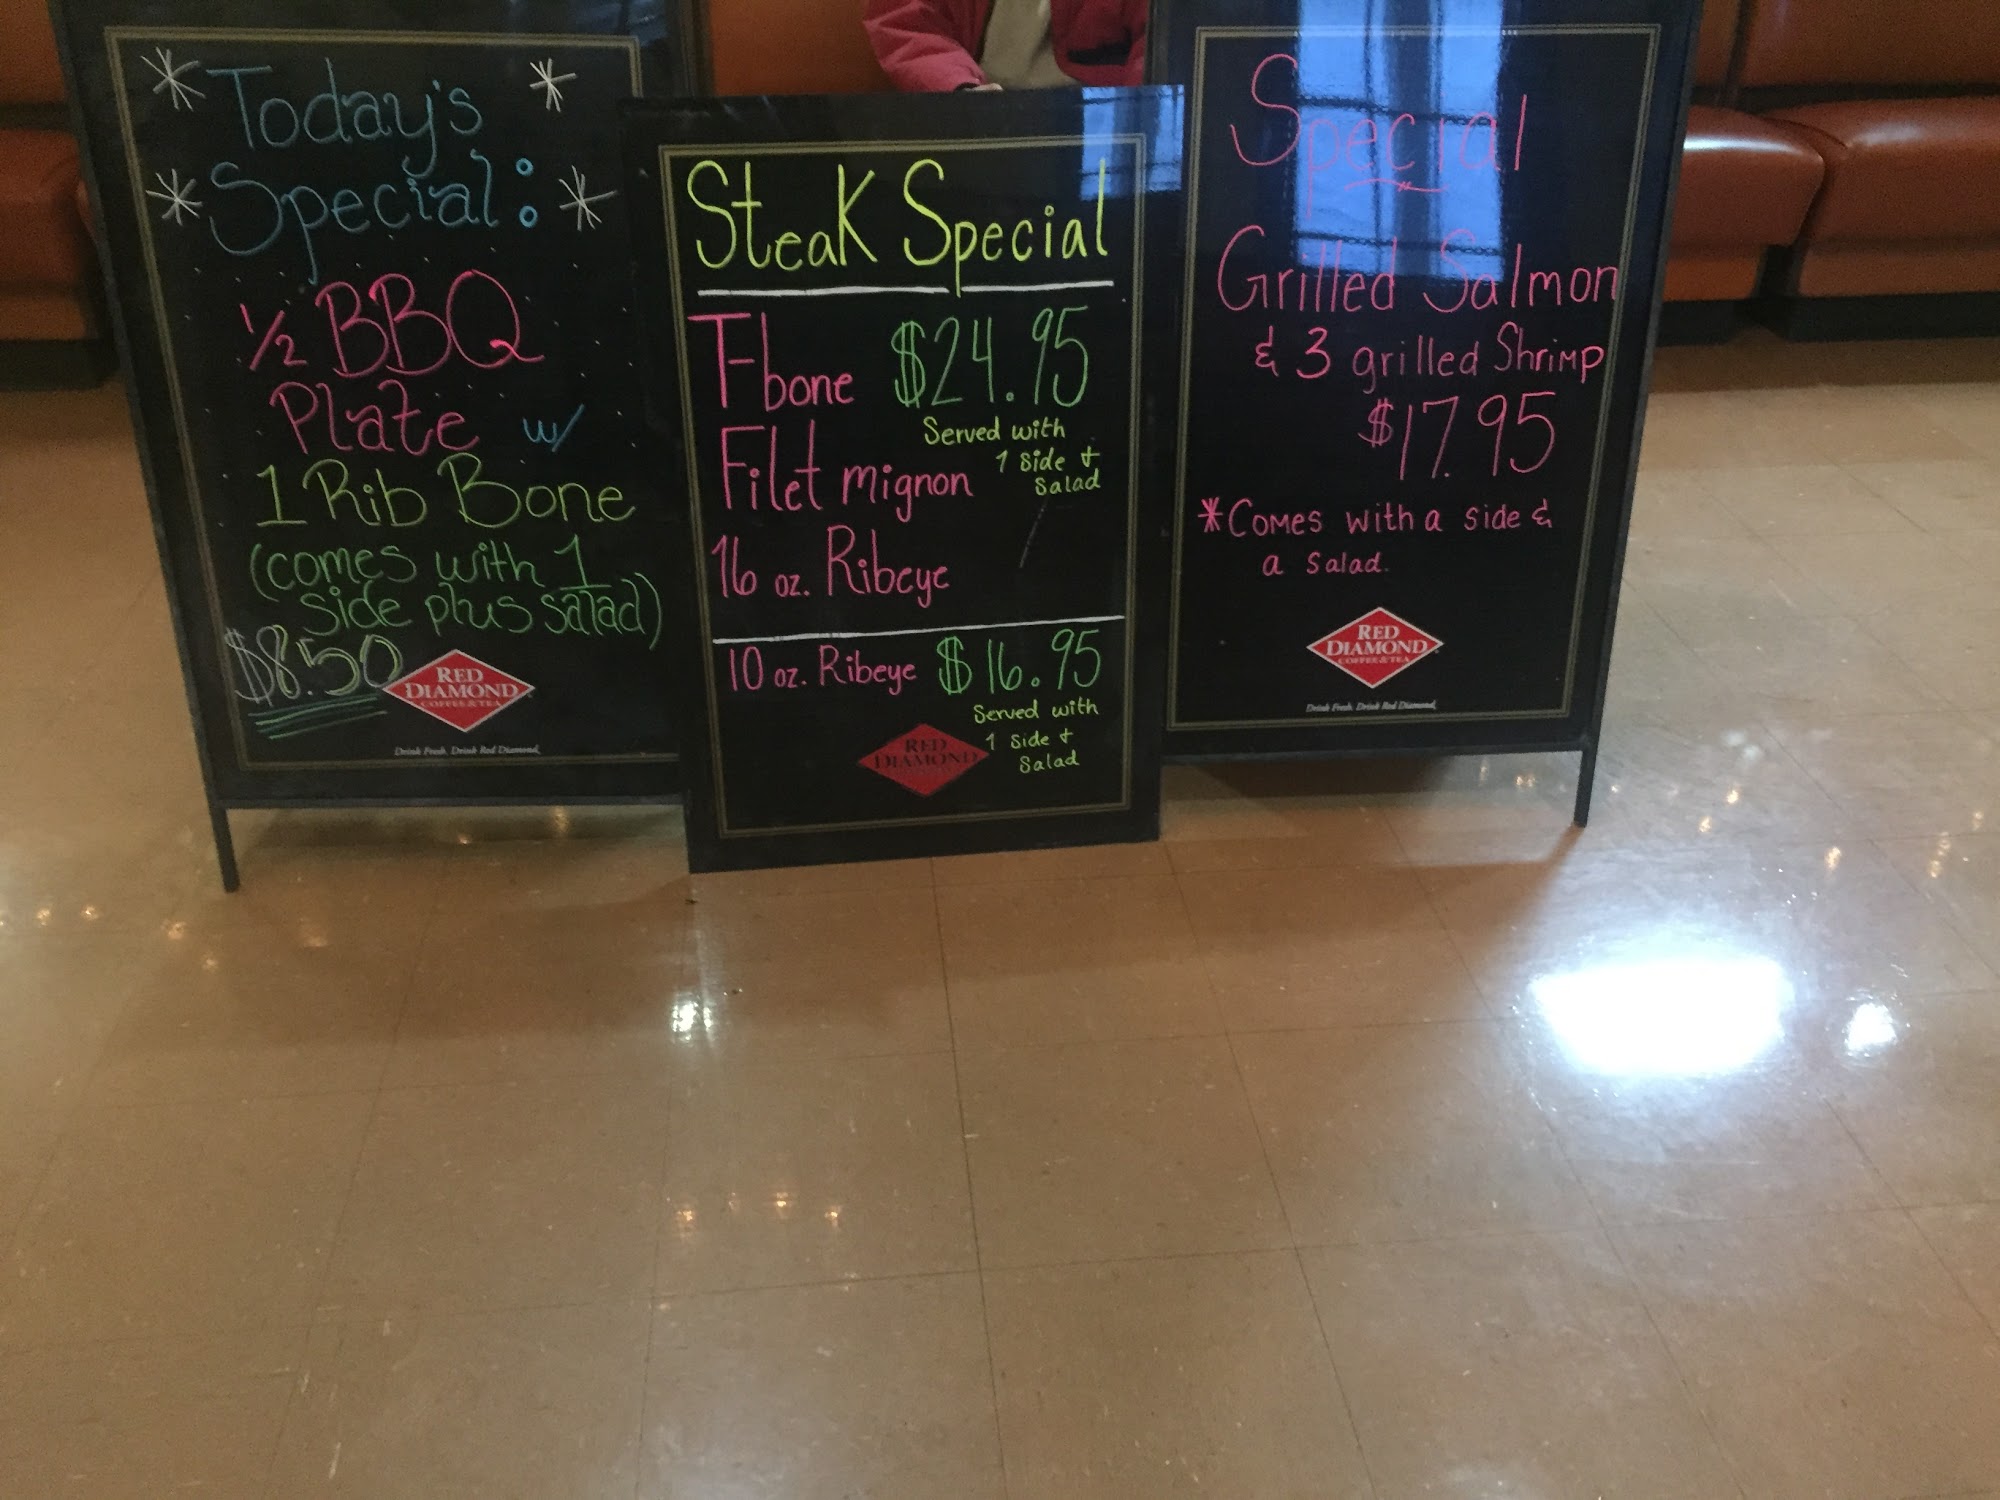 Today's
Special:
1/2 BBQ
Plate w/
1 Rib Bone
(comes with 1
side plus salad)
$8.50
RED
DIAMOND
COFFEE & TEA
Drink Fresh. Drink Red Diamond.
Steak Special
T-bone $24.95
Served with
1 side +
salad
Filet mignon
16 oz. Ribeye
10 oz. Ribeye $16.95
Served with
1 side +
Salad
RED
DIAMOND
Special
Grilled Salmon
& 3 grilled Shrimp
$17.95
*Comes with a side &
a salad.
RED
DIAMOND
COFFEE & TEA
Drink Fresh. Drink Red Diamond.